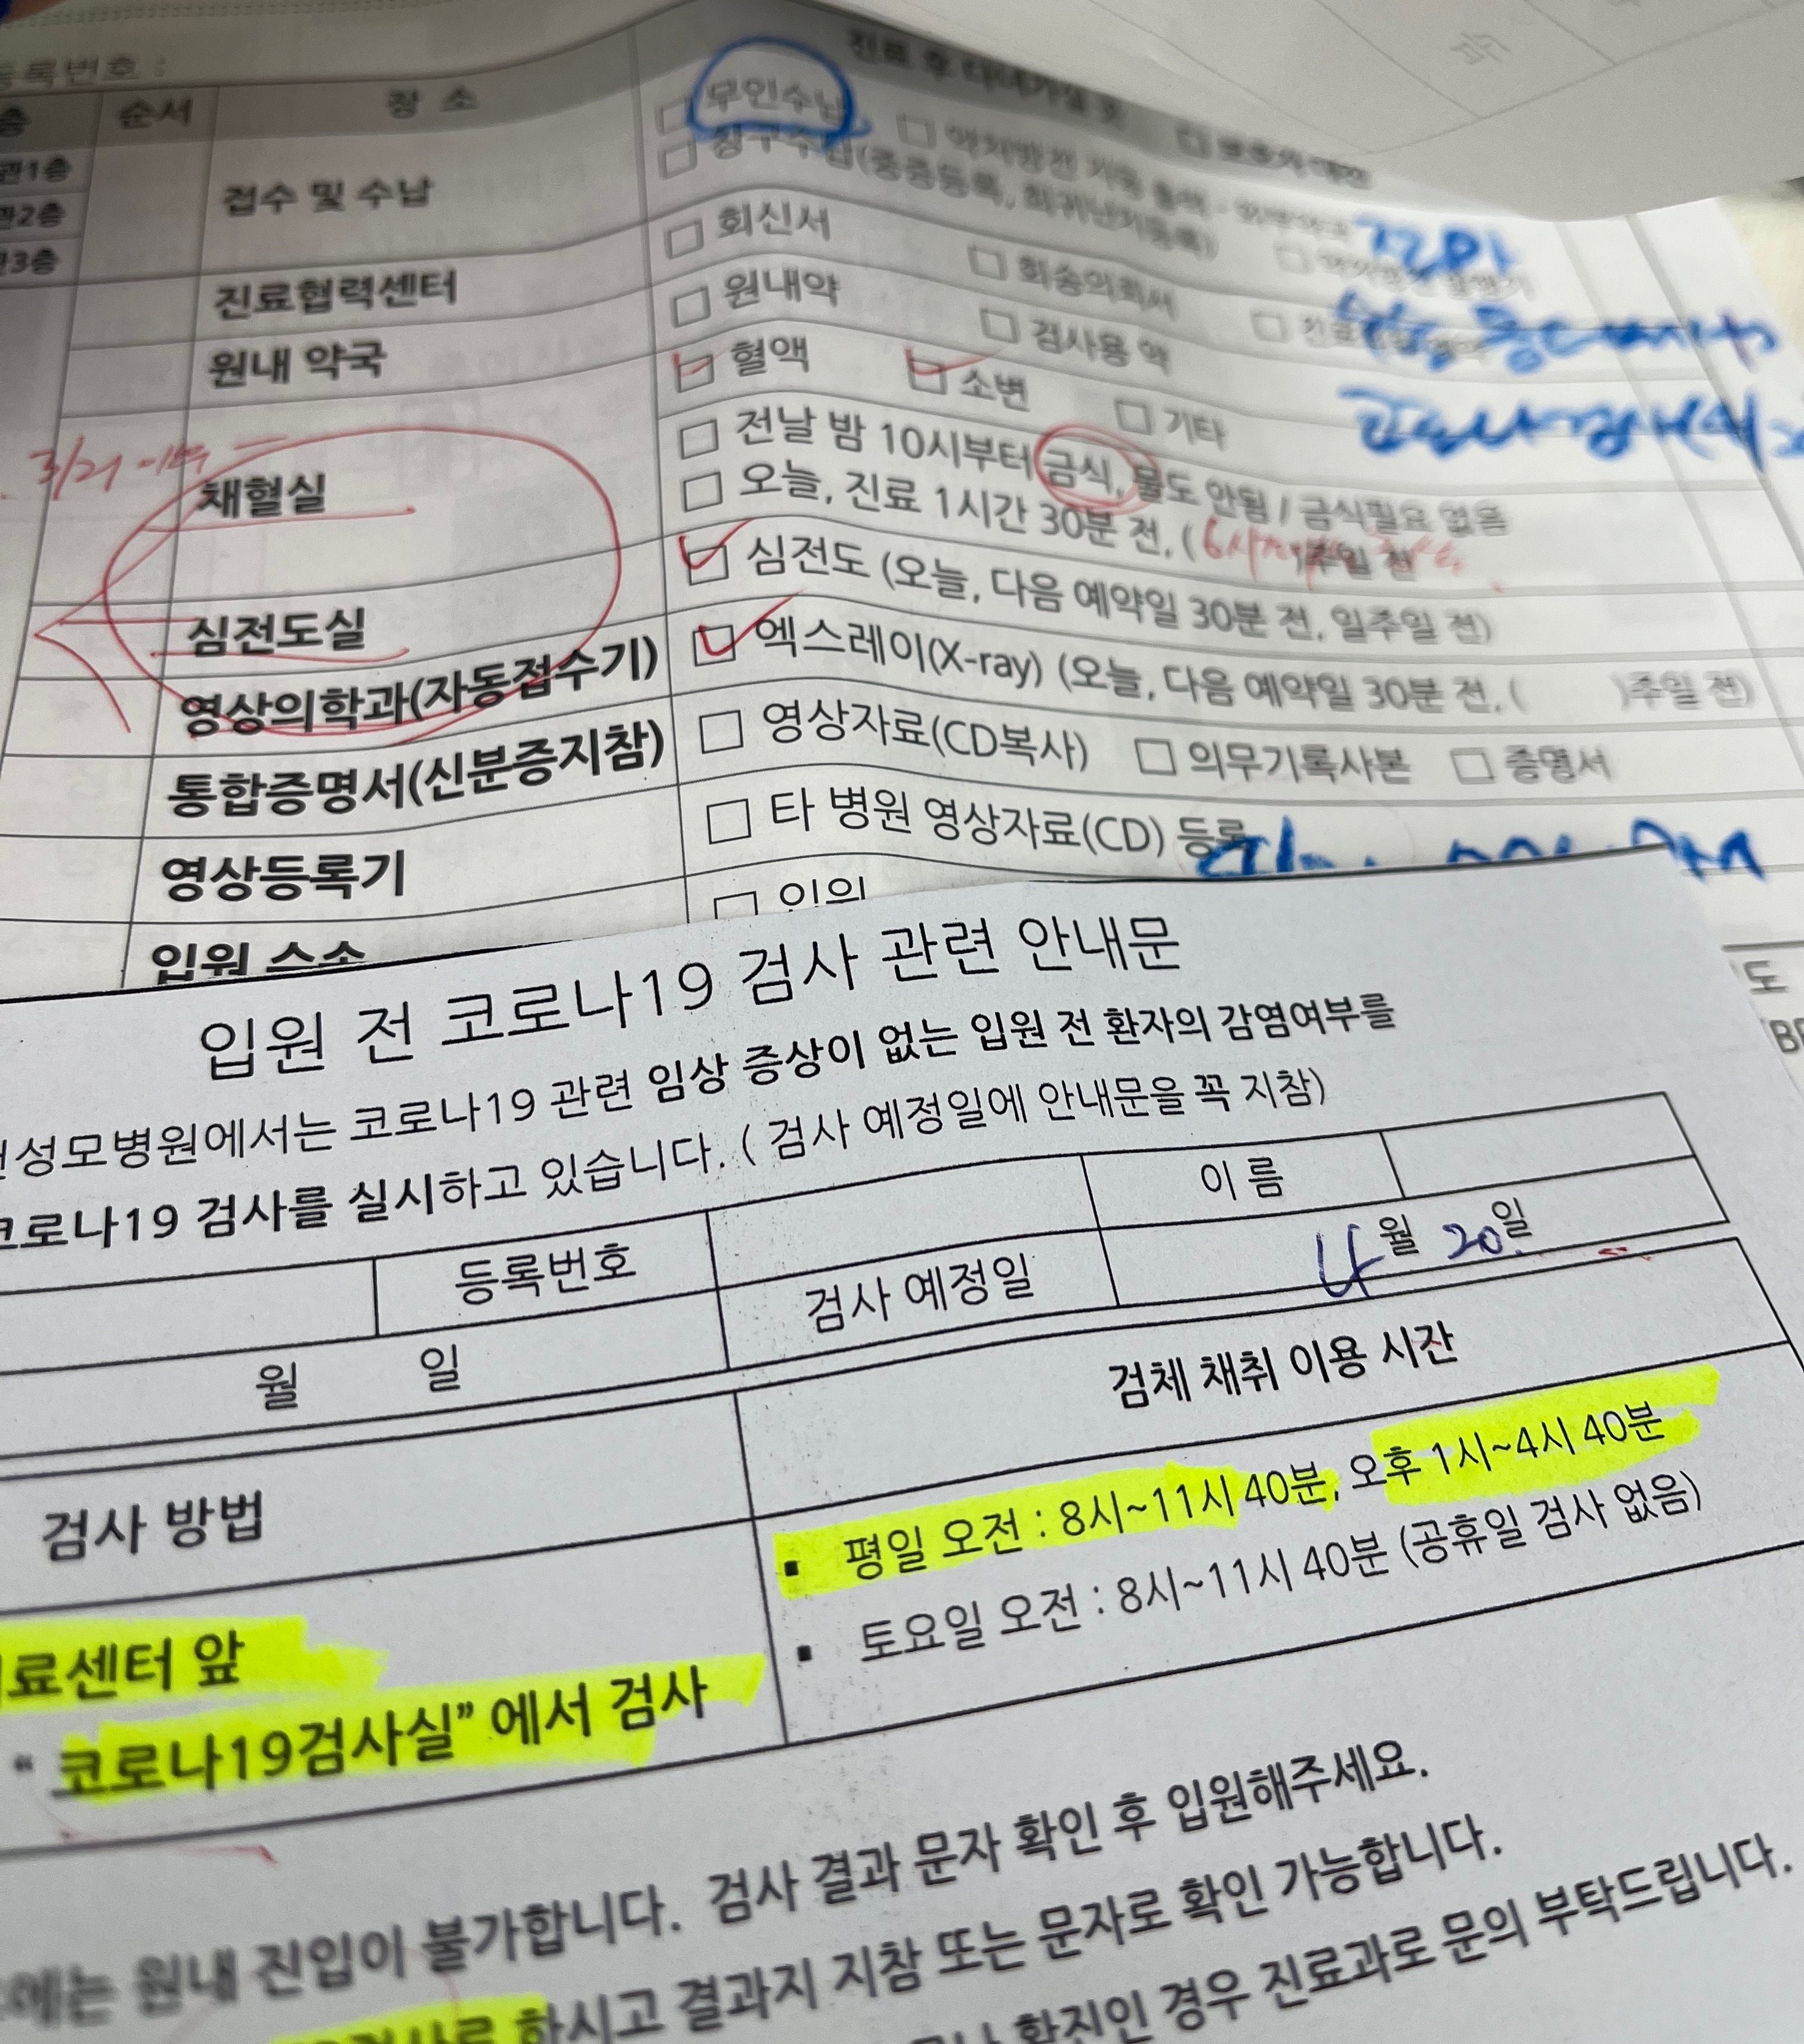 등록번호 :
층 순서 장 소
진료 후
관1층
관2층
3층
접수 및 수납
□ 무인수납
□ 창구수납(중증등록, 희귀난치등록)
진료협력센터 □ 회신서 □ 회송의뢰서
원내 약국 □ 원내약 □ 검사용 약
채혈실
□ 혈액 □ 소변 □ 기타
□ 전날 밤 10시부터 금식, 물도 안됨 / 금식필요 없음
□ 오늘, 진료 1시간 30분 전, ( )주일 전
3/21
코로나검사
심전도실 □ 심전도 (오늘, 다음 예약일 30분 전, 일주일 전)
영상의학과(자동접수기) □ 엑스레이(X-ray) (오늘, 다음 예약일 30분 전, ( )주일 전)
통합증명서(신분증지참) □ 영상자료(CD복사) □ 의무기록사본 □ 증명서
영상등록기 □ 타 병원 영상자료(CD) 등록
입원 □ 입원
입원 전 코로나19 검사 관련 안내문
성모병원에서는 코로나19 관련 임상 증상이 없는 입원 전 환자의 감염여부를
코로나19 검사를 실시하고 있습니다. ( 검사 예정일에 안내문을 꼭 지참)
등록번호 이 름
월 일 검사 예정일 4월 20일
검사 방법 검체 채취 이용 시간
▪ 평일 오전 : 8시~11시 40분, 오후 1시~4시 40분
▪ 토요일 오전 : 8시~11시 40분 (공휴일 검사 없음)
료센터 앞
“ 코로나19검사실” 에서 검사
에는 원내 진입이 불가합니다. 검사 결과 문자 확인 후 입원해주세요.
하시고 결과지 지참 또는 문자로 확인 가능합니다.
확진인 경우 진료과로 문의 부탁드립니다.